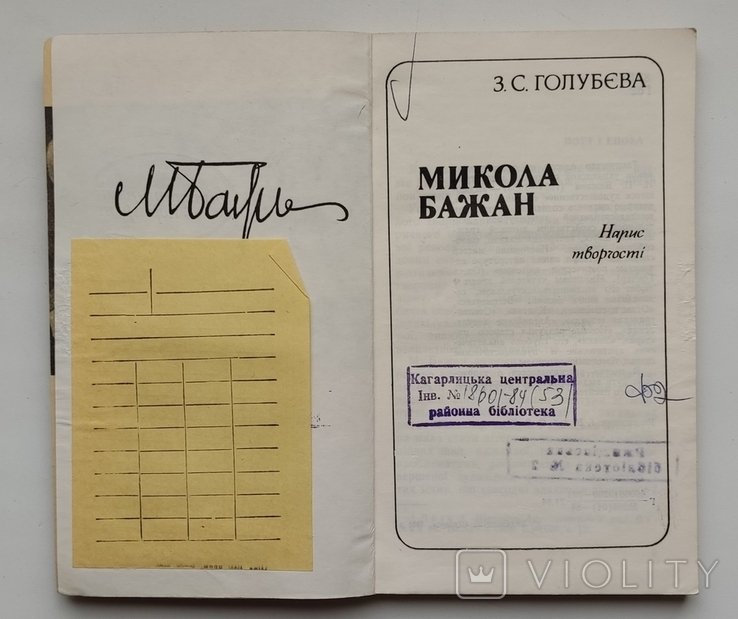 З. С. ГОЛУБЄВА
МИКОЛА
БАЖАН
Нарис
творчості
Кагарлицька центральна
Інв. № 18601-84(53)
районна бібліотека
бібліотека № 2
VIOLITY